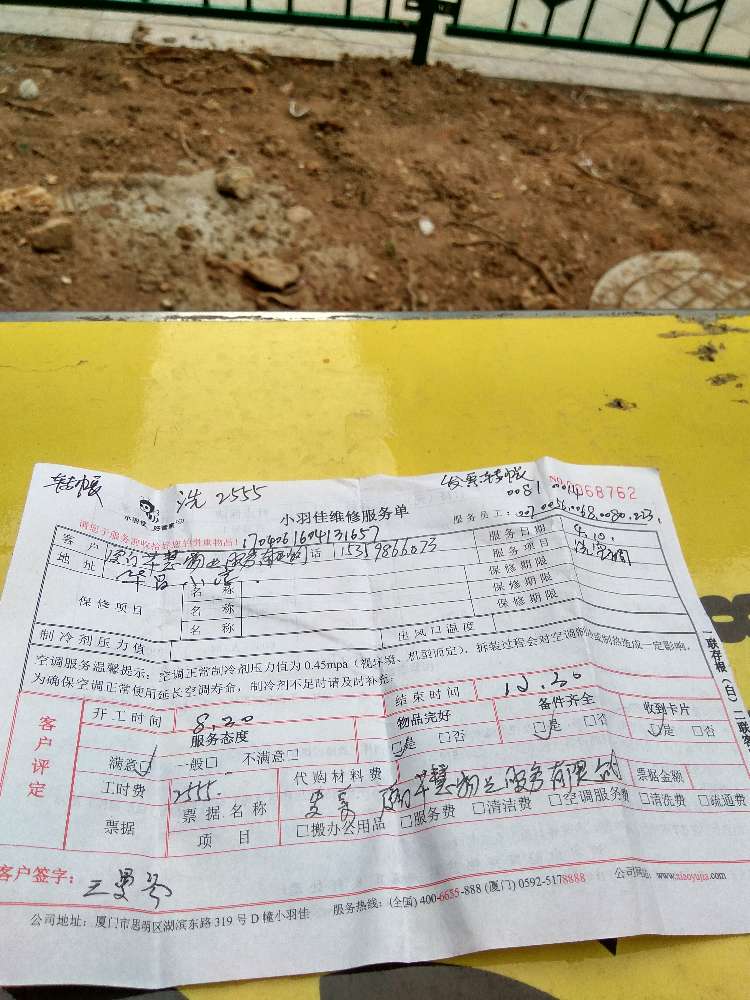 转帐 洗 2555 发票转帐
小羽佳 好管家
NO 0068762
小羽佳维修服务单
0081
服务员工:
请您于服务前收拾好您的贵重物品! 1704061604131657
客户 物业服务有限公司 话 服务日期 4.10.
地址 小学 服务项目 洗空调
保修项目 名称 保修期限
名称 保修期限
名称 保修期限
制冷剂压力值 出风口温度
空调服务温馨提示:空调正常制冷剂压力值为 0.45mpa(视环境、机型而定),拆装过程会对空调制冷或制热造成一定影响,
为确保空调正常使用延长空调寿命,制冷剂不足时请及时补充。
客户评定 开工时间 8.20 结束时间 12.20
服务态度 物品完好 备件齐全 收到卡片
满意□ 一般□ 不满意□ □是 □否 □是 □否 □是 □否
工时费 2555. 代购材料费
票据 票据名称 发票 物业服务有限公司 票据金额
项目 □搬办公用品 □服务费 □清洁费 □空调服务费 □清洗费 □疏通费
客户签字:
公司地址:厦门市思明区湖滨东路 319 号 D 幢小羽佳 服务热线:(全国) 400-6655-888 (厦门) 0592-5178888 公司网站:www.xiaoyujia.com
一联存根(白) 二联客